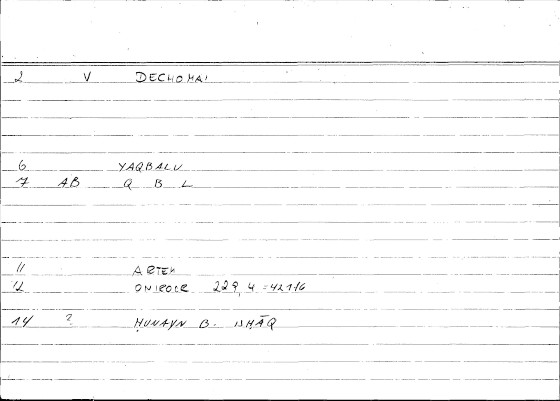 2 V DECHOMAI
6 YAQBALU
7 AB Q B L
11 ARTEM
12 ONIROCR 229, 4 = 42116
14 ? ḤUNAYN B. ISḤĀQ